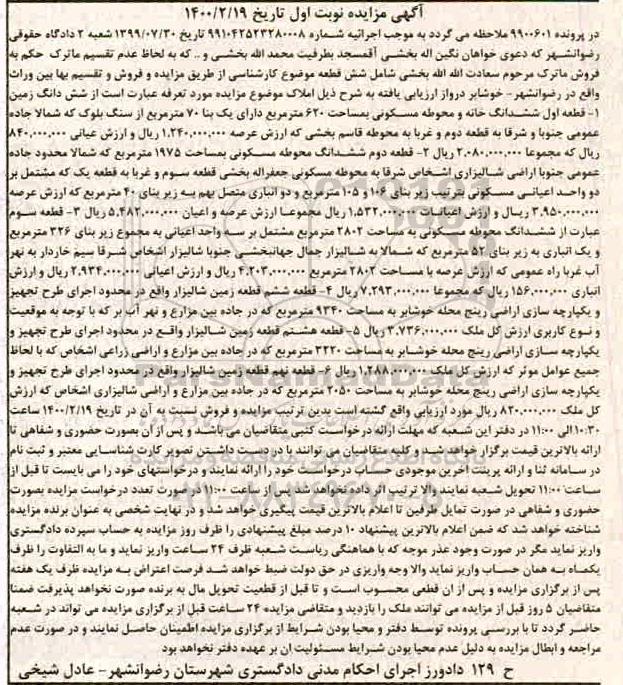 آگهی مزایده نوبت اول تاریخ ۱۴۰۰/۲/۱۹
در پرونده ۹۹۰۰۶۰۱ ملاحظه می گردد به موجب اجرائیه شماره ۹۹۱۰۴۲۵۲۳۲۸۰۰۰۸ تاریخ ۱۳۹۹/۰۷/۳۰ شعبه ۲ دادگاه حقوقی
رضوانشهر که دعوی خواهان نگین اله بخشی آقمسجد بطرفیت محمد الله بخشی و .. که به لحاظ عدم تقسیم ماترک حکم به
فروش ماترک مرحوم سعادت الله الله بخشی شامل شش قطعه موضوع کارشناسی از طریق مزایده و فروش و تقسیم بها بین وراث
واقع در رضوانشهر- خوشابر درواز ارزیابی یافته به شرح ذیل املاک موضوع مزایده مورد تعرفه عبارت است از شش دانگ زمین
۱- قطعه اول ششدانگ خانه و محوطه مسکونی بمساحت ۶۲۰ مترمربع دارای یک بنا ۷۰ مترمربع از سنگ بلوک که شمالا جاده
عمومی جنوبا و شرقا به قطعه دوم و غربا به محوطه قاسم بخشی که ارزش عرصه ۱.۲۴۰.۰۰۰.۰۰۰ ریال و ارزش عیانی ۸۴۰.۰۰۰.۰۰۰
ریال که مجموعا ۲.۰۸۰.۰۰۰.۰۰۰ ریال ۲- قطعه دوم ششدانگ محوطه مسکونی بمساحت ۱۹۷۵ مترمربع که شمالا محدود جاده
عمومی جنوبا اراضی شالیزاری اشخاص شرقا به محوطه مسکونی جعفراله بخشی قطعه سوم و غربا به قطعه یک که مشتمل بر
دو واحد اعیانی مسکونی بترتیب زیر بنای ۱۰۶ و ۱۰۵ مترمربع و دو انباری متصل بهم به زیر بنای ۴۰ مترمربع که ارزش عرصه
۳.۹۵۰.۰۰۰.۰۰۰ ریال و ارزش اعیانات ۱.۵۳۲.۰۰۰.۰۰۰ ریال مجموعا ارزش عرصه و اعیان ۵.۴۸۲.۰۰۰.۰۰۰ ریال ۳- قطعه سوم
عبارت از ششدانگ محوطه مسکونی به مساحت ۲۸۰۲ مترمربع مشتمل بر سه واحد اعیانی به مجموع زیر بنای ۳۲۶ مترمربع
و یک انباری به زیر بنای ۵۲ مترمربع که شمالا به شالیزار جمال جهانبخشی جنوبا شالیزار اشخاص شرقا سیم خاردار به نهر
آب غربا راه عمومی که ارزش عرصه با مساحت ۲۸۰۲ مترمربع ۴.۲۰۳.۰۰۰.۰۰۰ ریال و ارزش اعیانی ۲.۹۳۴.۰۰۰.۰۰۰ ریال و ارزش
انباری ۱۵۶.۰۰۰.۰۰۰ ریال که مجموعا ۷.۲۹۳.۰۰۰.۰۰۰ ریال ۴- قطعه ششم قطعه زمین شالیزار واقع در محدود اجرای طرح تجهیز
و یکپارچه سازی اراضی رینج محله خوشابر به مساحت ۹۳۴۰ مترمربع که در جاده بین مزارع و نهر آب بر که با توجه به موقعیت
و نوع کاربری ارزش کل ملک ۳.۷۳۶.۰۰۰.۰۰۰ ریال ۵- قطعه هشتم قطعه زمین شالیزار واقع در محدود اجرای طرح تجهیز و
یکپارچه سازی اراضی رینج محله خوشابر به مساحت ۳۲۲۰ مترمربع که در جاده بین مزارع و اراضی زراعی اشخاص که با لحاظ
جمیع عوامل موثر که ارزش کل ملک ۱.۲۸۸.۰۰۰.۰۰۰ ریال ۶- قطعه نهم قطعه زمین شالیزار واقع در محدود اجرای طرح تجهیز و
یکپارچه سازی اراضی رینج محله خوشابر به مساحت ۲۰۵۰ مترمربع که در جاده بین مزارع و اراضی شالیزاری اشخاص که ارزش
کل ملک ۸۲۰.۰۰۰.۰۰۰ ریال مورد ارزیابی واقع گشته است بدین ترتیب مزایده و فروش نسبت به آن در تاریخ ۱۴۰۰/۲/۱۹ ساعت
۱۰:۳۰ الی ۱۱:۰۰ در دفتر این شعبه که مهلت ارائه درخواست کتبی متقاضیان می باشد و پس از آن بصورت حضوری و شفاهی تا
ارائه بالاترین قیمت برگزار خواهد شد و کلیه متقاضیان می توانند با در دست داشتن تصویر کارت شناسایی معتبر و ثبت نام
در سامانه ثنا و ارائه پرینت آخرین موجودی حساب درخواست خود را ارائه نمایند و درخواستهای خود را می بایست تا قبل از
ساعت ۱۱:۰۰ تحویل شعبه نمایند والا ترتیب اثر داده نخواهد شد پس از ساعت ۱۱:۰۰ در صورت تعدد درخواست مزایده بصورت
حضوری و شفاهی در صورت تمایل طرفین تا اعلام بالاترین قیمت پیگیری خواهد شد و در نهایت شخصی به عنوان برنده مزایده
شناخته خواهد شد که ضمن اعلام بالاترین پیشنهاد ۱۰ درصد مبلغ پیشنهادی را ظرف روز مزایده به حساب سپرده دادگستری
واریز نماید مگر در صورت وجود عذر موجه که با هماهنگی ریاست شعبه ظرف ۲۴ ساعت واریز نماید و ما به التفاوت را ظرف
یکماه به همان حساب واریز نماید والا وجه واریزی در حق دولت ضبط خواهد شد فرصت اعتراض به مزایده ظرف یک هفته
پس از برگزاری مزایده و پس از ان قطعی محسوب است و تا قبل از قطعیت تحویل مال به برنده صورت نخواهد پذیرفت ضمنا
متقاضیان ۵ روز قبل از مزایده می توانند ملک را بازدید و متقاضی مزایده ۲۴ ساعت قبل از برگزاری مزایده می تواند در شعبه
حاضر گردد تا با بررسی پرونده توسط دفتر و محیا بودن شرایط از برگزاری مزایده اطمینان حاصل نمایند و در صورت عدم
مراجعه و ابطال مزایده به دلیل عدم محیا بودن شرایط مسئولیت ان بر عهده دفتر نخواهد بود
ح ۱۲۹ دادورز اجرای احکام مدنی دادگستری شهرستان رضوانشهر- عادل شیخی